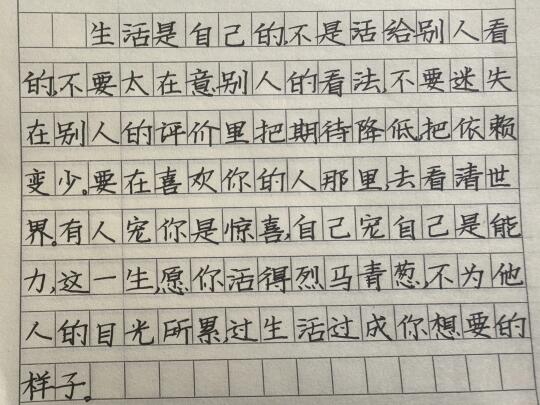 生活是自己的,不是活给别人看
的,不要太在意别人的看法,不要迷失
在别人的评价里把期待降低,把依赖
变少。要在喜欢你的人那里,去看清世
界。有人宠你是惊喜,自己宠自己是能
力,这一生,愿你活得烈马青葱,不为他
人的目光所累,过生活过成你想要的
样子。